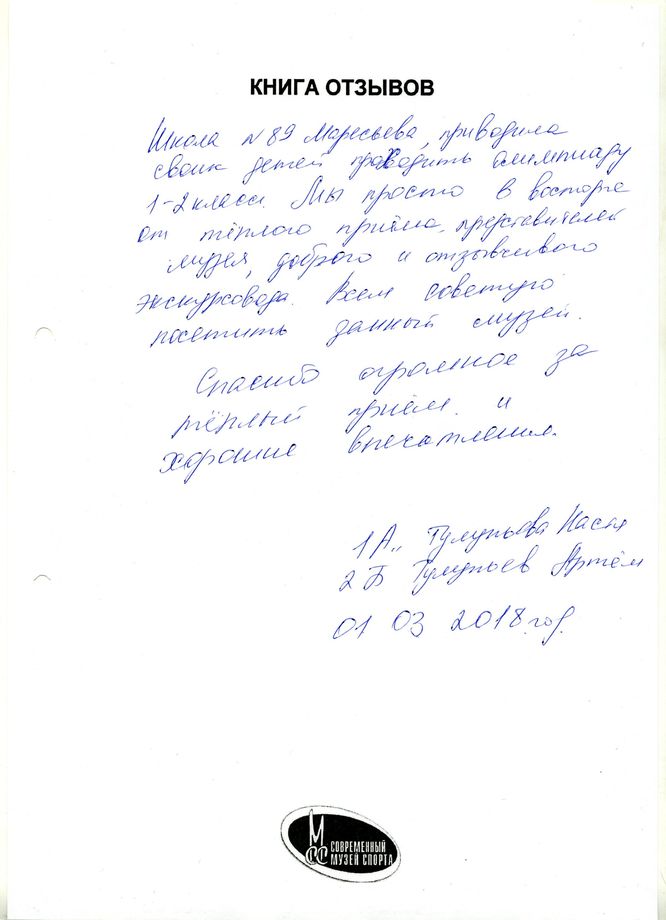 КНИГА ОТЗЫВОВ
Школа №89 Маресьева, приводила
своих детей проХодить олимпиаду
1-2 класс. Мы просто в восторге
от тёплого приёма представителей
музея, доброго и отзывчивого
экскурсовода. Всем советую
посетить данный музей.
Спасибо огромное за
тёплый приём и
хорошие впечатления.
1 А„ Тулупьева Настя
2 Б Тулупьев Артём
01 03 2018 год.
М
СС СОВРЕМЕННЫЙ
МУЗЕЙ СПОРТА